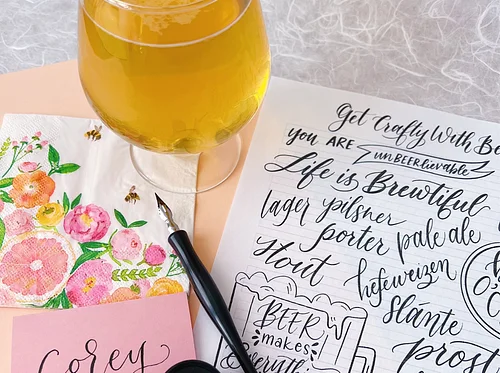 Get Crafty With
you ARE unBEERlievable
Life is Brewtiful
lager pilsner
porter pale ale
Stout
hefeweizen
Sláinte
BEER
makes
prost
Corey